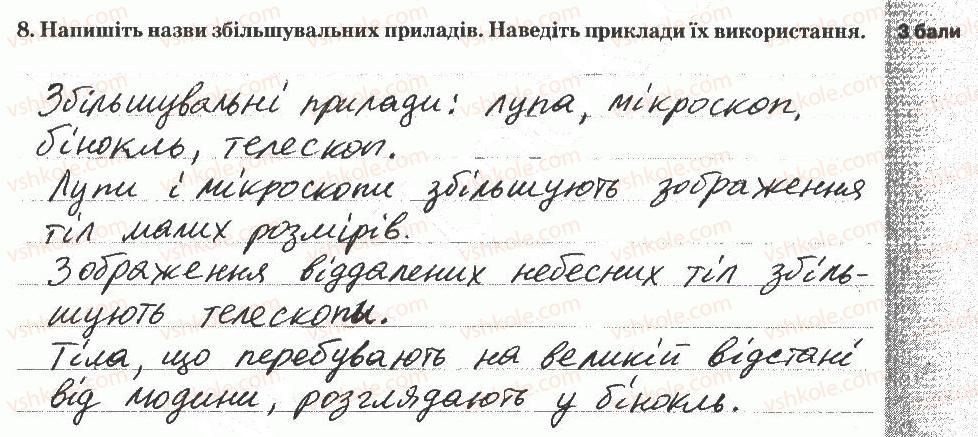 8. Напишіть назви збільшувальних приладів. Наведіть приклади їх використання. 3 бали
Збільшувальні прилади: лупа, мікроскоп,
бінокль, телескоп.
Лупи і мікроскопи збільшують зображення
тіл малих розмірів.
Зображення віддалених небесних тіл збіль-
шують телескопы.
Тіла, що перебувають на великій відстані
від людини, розглядають у бінокль.